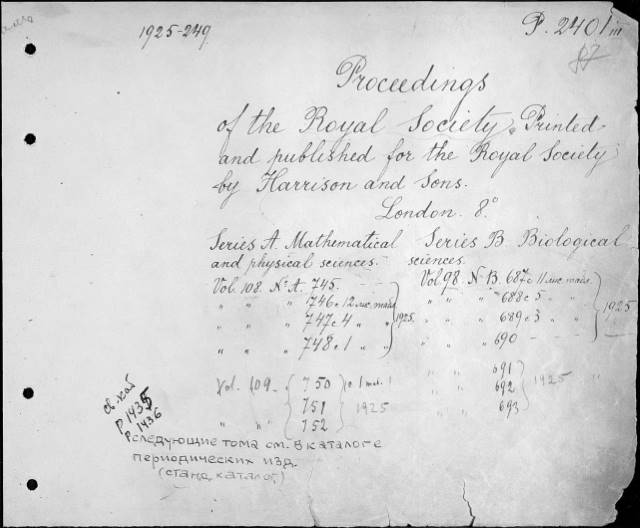 1925-249
P. 2401 m
87
Proceedings
of the Royal Society. Printed
and published for the Royal Society
by Harrison and Sons.
London. 8°
Series A. Mathematical
and physical sciences.
Vol. 108. № A. 745.
" " " 746 с 12 лис. табл.
" " " 747 с 4 " "
" " " 748 с 1 " "
1925.
Vol. 109. 750
751
" " 752
1925
Series B. Biological
sciences.
Vol. 98. № B. 687 с 11 лис. табл.
" " " 688 с 5 " "
" " " 689 с 3 " "
" " " 690
1925
" " 691
" " 692
" " 693
1925
св. каб
P 1435
P. 1436
следующие тома см. в каталоге
периодических изд.
(станд. каталог)